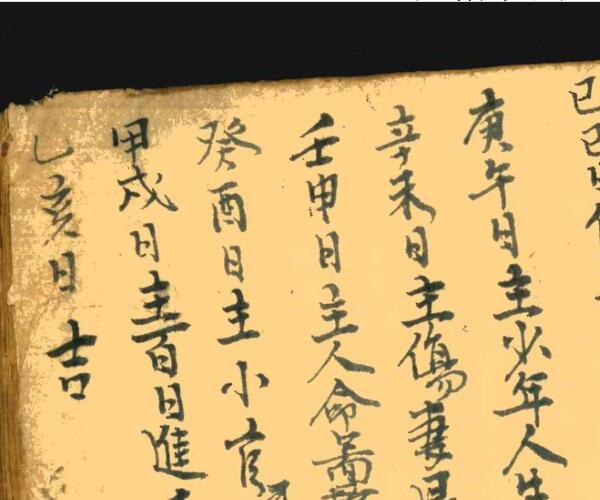 己巳日
庚午日主少年人
辛未日主傷妻
壬申日主人命
癸酉日主小官
甲戌日主百日進
乙亥日吉